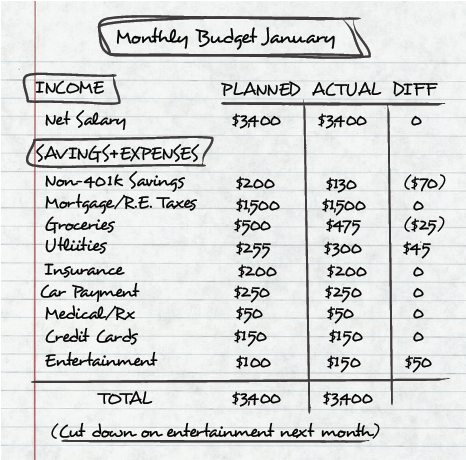 Monthly Budget January
INCOME PLANNED ACTUAL DIFF
Net Salary $3,400 $3,400 0
SAVINGS+EXPENSES
Non-401k Savings $200 $130 ($70)
Mortgage/R.E. Taxes $1,500 $1,500 0
Groceries $500 $475 ($25)
Utliities $255 $300 $45
Insurance $200 $200 0
Car Payment $250 $250 0
Medical/Rx $50 $50 0
Credit Cards $150 $150 0
Entertainment $100 $150 $50
TOTAL $3,400 $3,400
(Cut down on entertainment next month)